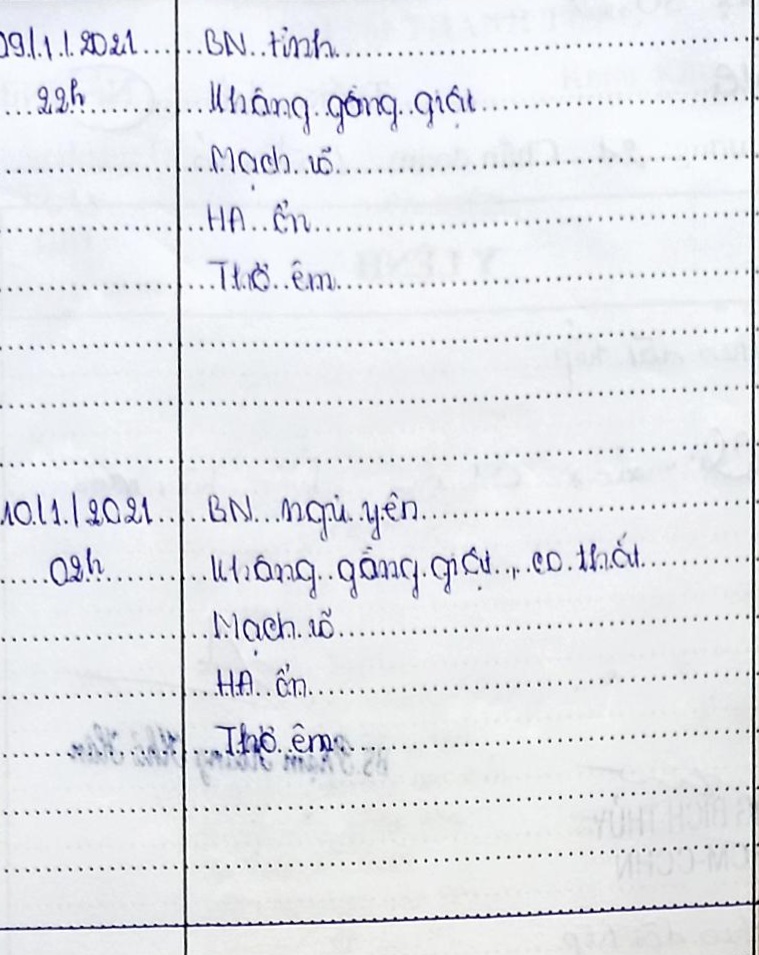 09/1/2021 BN tỉnh
22h Không gồng giật
Mạch rõ
HA ổn
Thở êm
10/1/2021 BN ngủ yên
02h Không gồng giật, co thắt
Mạch rõ
HA ổn
Thở êm